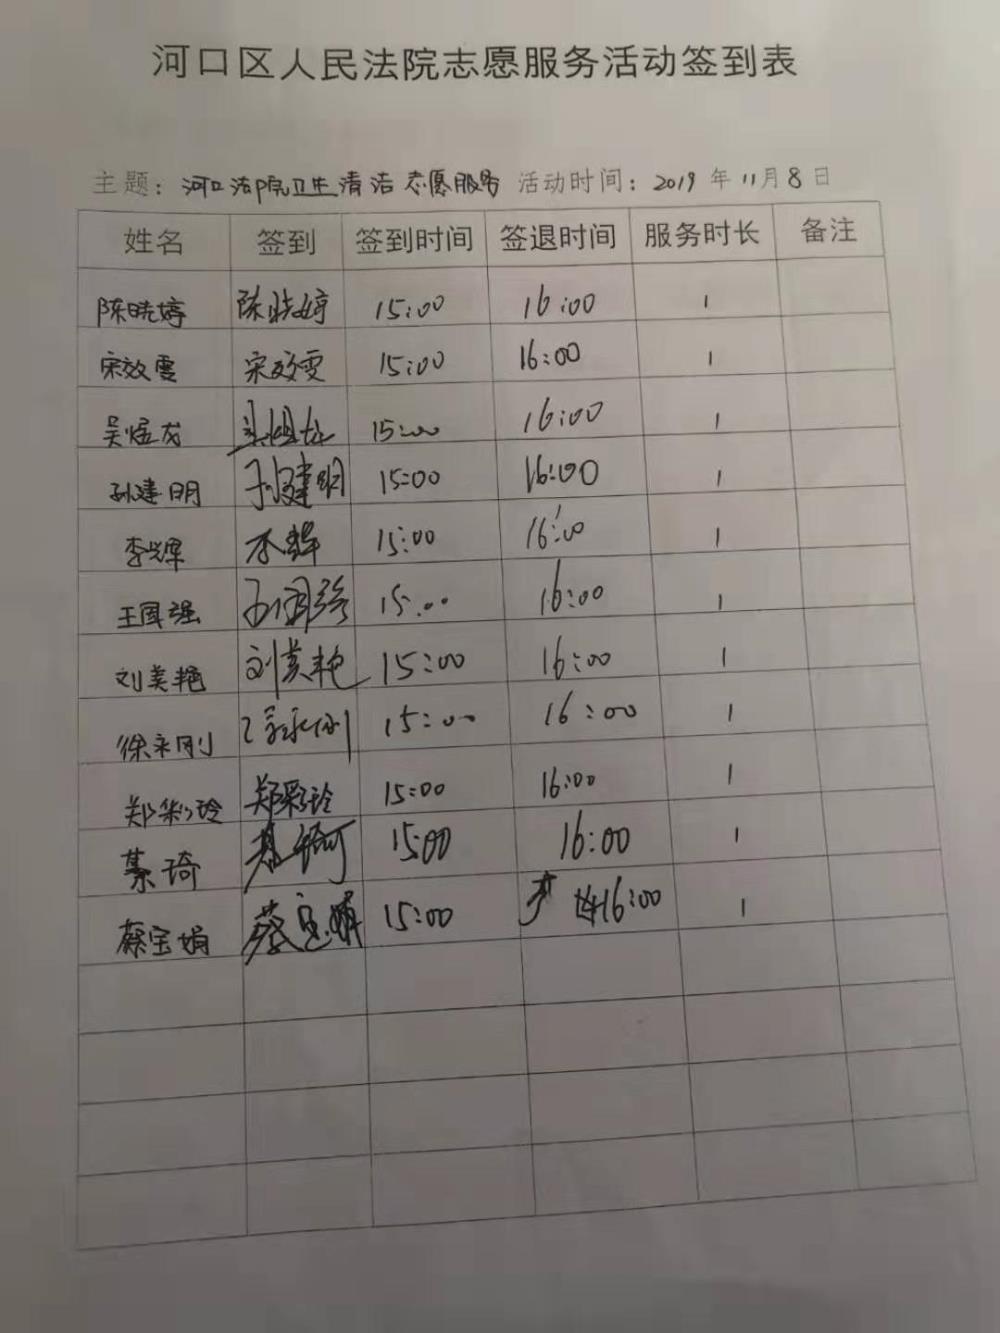 河口区人民法院志愿服务活动签到表
主题：河口法院卫生清洁志愿服务 活动时间：2019年11月8日
姓名 签到 签到时间 签退时间 服务时长 备注
陈晓婷 陈晓婷 15:00 16:00 1
宋效雯 宋效雯 15:00 16:00 1
吴煜龙 吴煜龙 15:00 16:00 1
孙建明 孙建明 15:00 16:00 1
李辉 李辉 15:00 16:00 1
王国强 王国强 15:00 16:00 1
刘美艳 刘美艳 15:00 16:00 1
徐永刚 徐永刚 15:00 16:00 1
郑彩玲 郑彩玲 15:00 16:00 1
綦琦 15:00 16:00 1
蔡宝娟 蔡宝娟 15:00 16:00 1